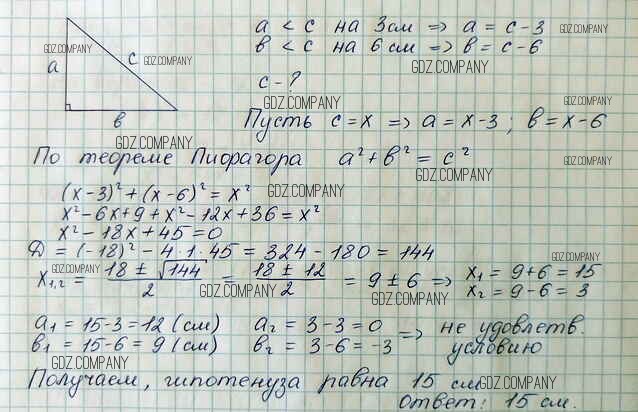 a < c на 3 см => a = c - 3 GDZ.COMPANY
GDZ.COMPANY c GDZ.COMPANY в < c на 6 см => в = c - 6
a GDZ.COMPANY
c - ?
GDZ.COMPANY GDZ.COMPANY
в Пусть c = x => a = x - 3 ; в = x - 6
GDZ.COMPANY
По теореме Пифрагора a² + в² = c² GDZ.COMPANY
GDZ.COMPANY
(x - 3)² + (x - 6)² = x² GDZ.COMPANY
x² - 6x + 9 + x² - 12x + 36 = x²
x² - 18x + 45 = 0
Д = (-18)² - 4 · 1 · 45 = 324 - 180 = 144 GDZ.COMPANY
x₁,₂ = GDZ.COMPANY 18 ± √144 / 2 = 18 ± 12 / 2 = 9 ± 6 => x₁ = 9 + 6 = 15
GDZ.COMPANY GDZ.COMPANY x₂ = 9 - 6 = 3
a₁ = 15 - 3 = 12 (см) a₂ = 3 - 3 = 0 => не удовлетв.
в₁ = 15 - 6 = 9 (см) в₂ = 3 - 6 = -3 условию
GDZ.COMPANY
Получаем, гипотенуза равна 15 см GDZ.COMPANY
ответ: 15 см.